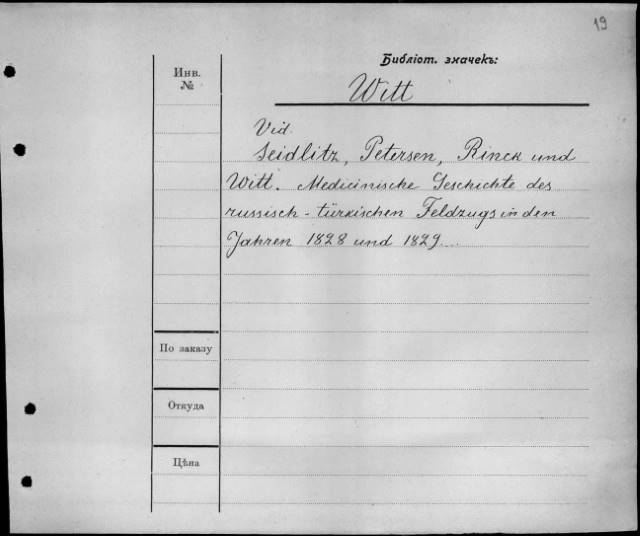 19
Библіот. значекъ:
Инв.
№
Witt
Vid.
Seidlitz, Petersen, Rinck und
Witt. Medicinische Geschichte des
russisch-türkischen Feldzugs in den
Jahren 1828 und 1829.
По заказу
Откуда
Цѣна